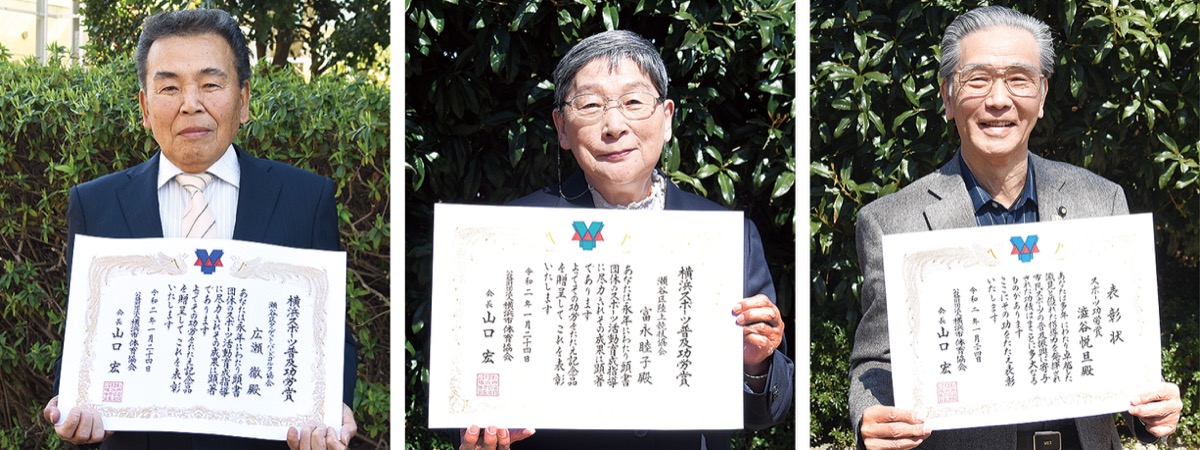 横浜スポーツ普及功労賞
瀬谷区ターゲット・バードゴルフ協会
広瀬 徹殿
あなたは永年にわたり頭書
団体のスポーツ活動育成指導
に尽力されその成果は顕著
であります
よってその功労をたたえ記念品
を贈呈してこれを表彰
いたします
令和二年一月二十四日
公益財団法人横浜市体育協会
会長 山口 宏
横浜スポーツ普及功労賞
瀬谷区陸上競技協会
富永睦子殿
あなたは永年にわたり頭書
団体のスポーツ活動育成指導
に尽力されその成果は顕著
であります
よってその功労をたたえ記念品
を贈呈してこれを表彰
いたします
令和二年一月二十四日
公益財団法人横浜市体育協会
会長 山口 宏
表彰状
スポーツ功労賞
澁谷悦旦殿
あなたは多年にわたり卓越した
識見と優れた指導力を発揮され
市民スポーツの普及振興に寄与
された功績はまことに多大なる
ものがあります
ここにその功をたたえ表彰
いたします
令和二年一月二十四日
公益財団法人横浜市体育協会
会長 山口 宏